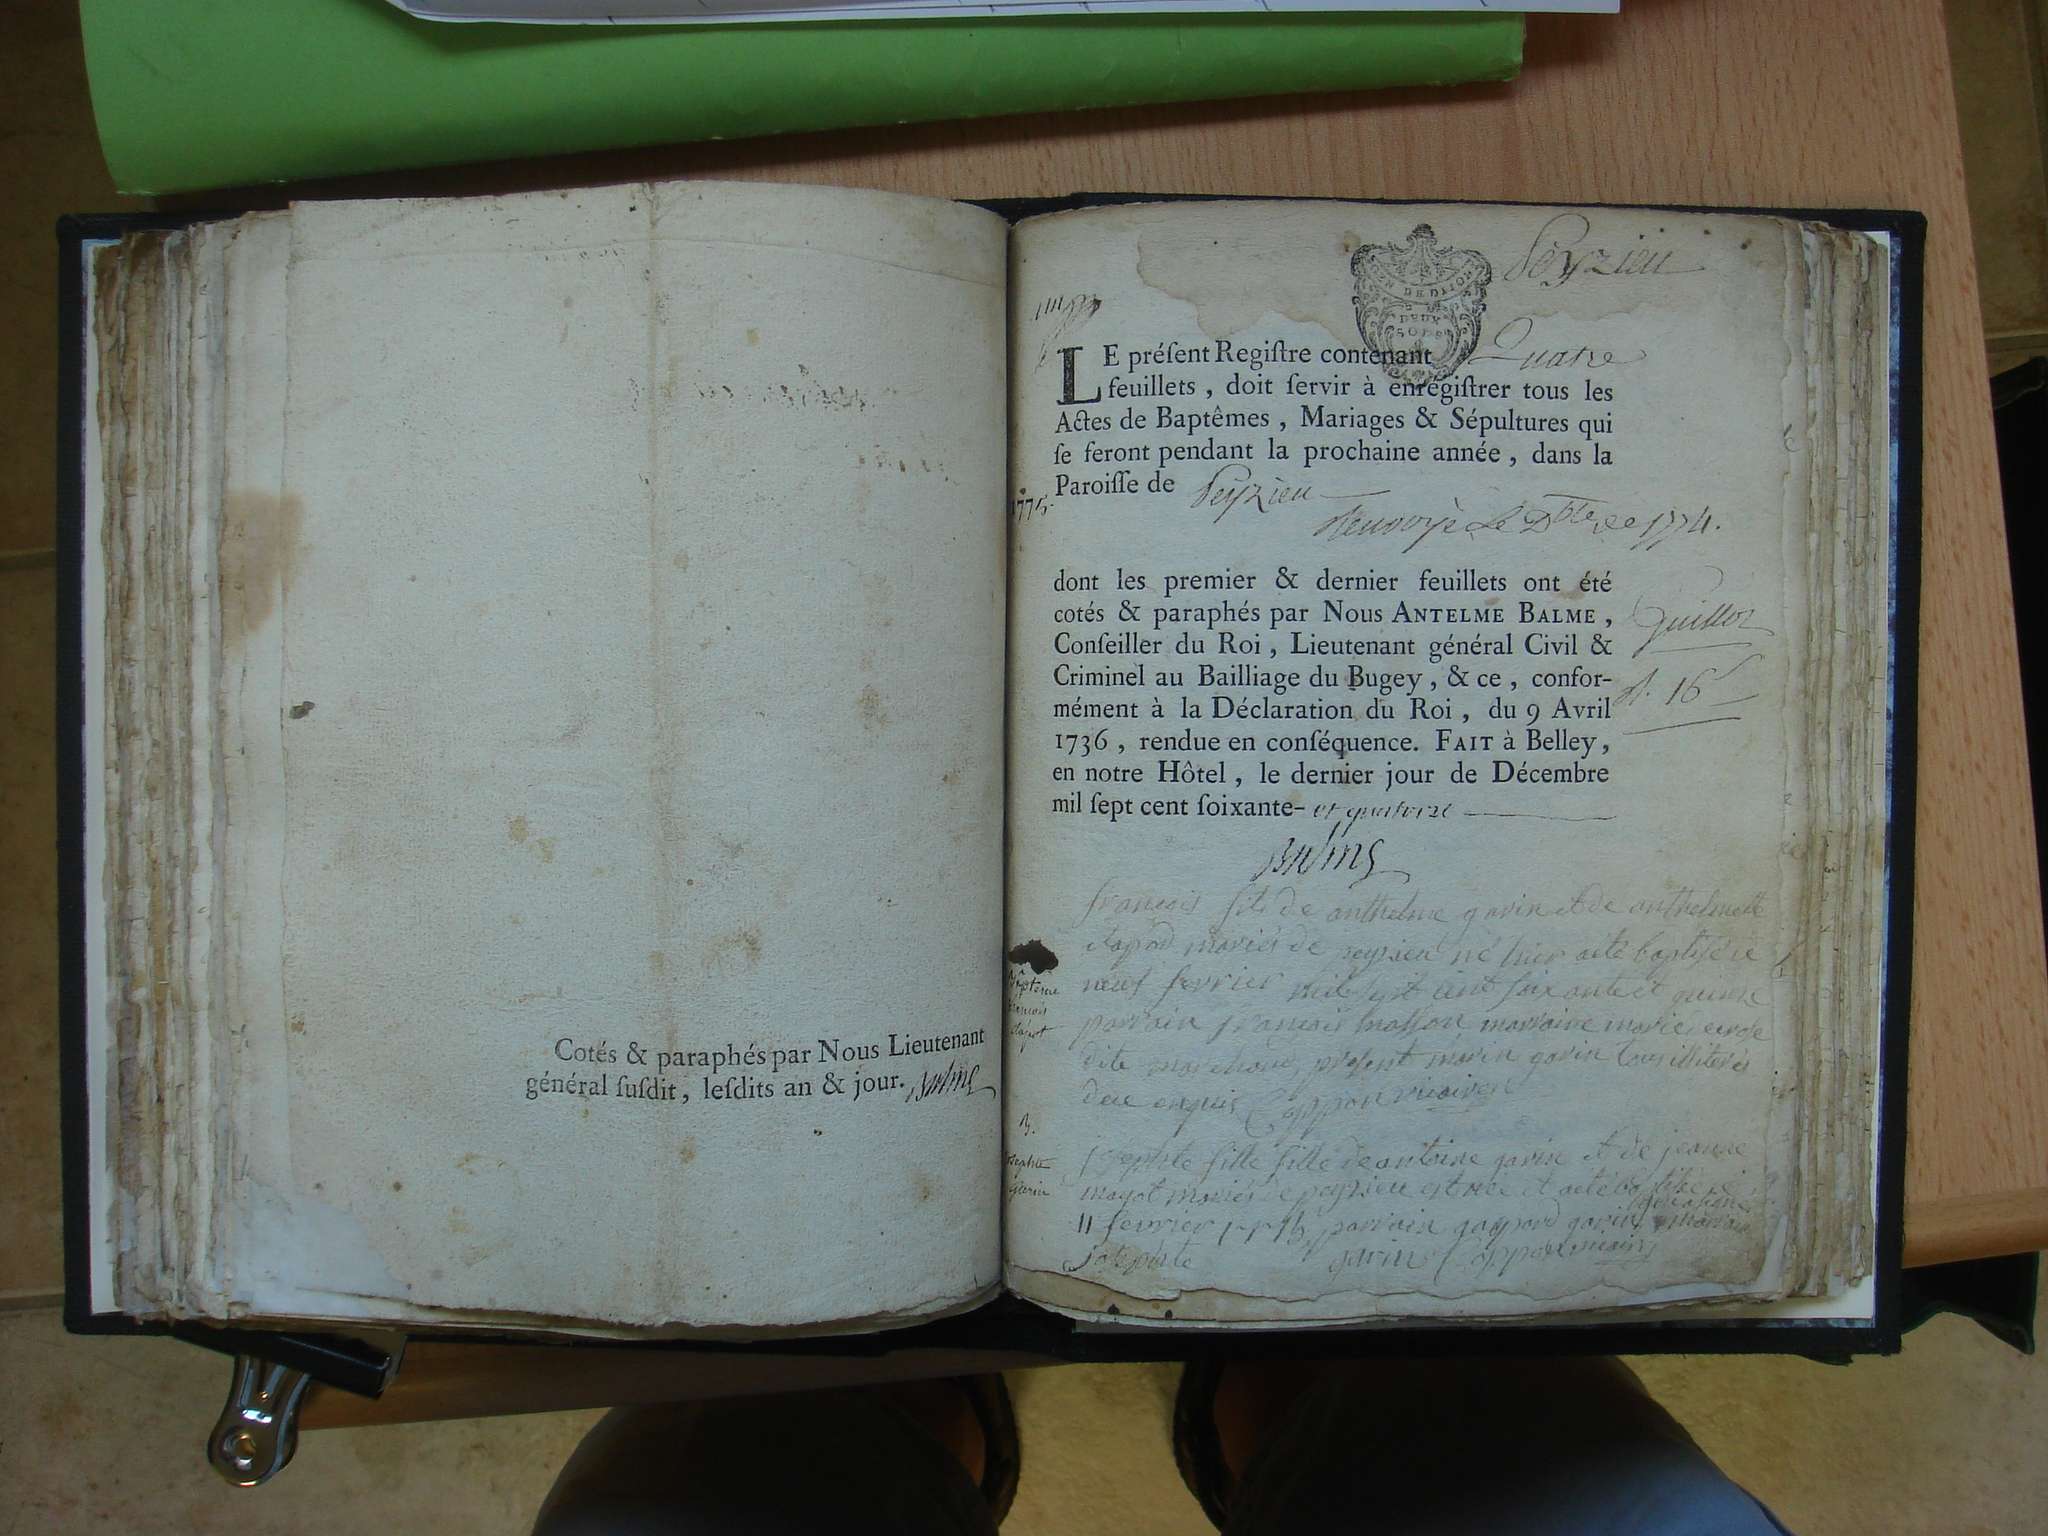 Cotés & paraphés par Nous Lieutenant
général ſuſdit, leſdits an & jour. Balme
Peyzieu
GEN DE DIJON
DEUX
SOLS
LE préſent Regiſtre contenant Quatre
feuillets, doit ſervir à enrégiſtrer tous les
Actes de Baptêmes, Mariages & Sépultures qui
ſe feront pendant la prochaine année, dans la
Paroiſſe de Peyzieu
1775
Renvoyé le Xbre de 1774.
dont les premier & dernier feuillets ont été
cotés & paraphés par Nous ANTELME BALME,
Conſeiller du Roi, Lieutenant général Civil &
Criminel au Bailliage du Bugey, & ce, confor-
mément à la Déclaration du Roi, du 9 Avril
1736, rendue en conſéquence. FAIT à Belley,
en notre Hôtel, le dernier jour de Décembre
mil ſept cent ſoixante- et quatorze
Guillot
16
Balme
françois fils de anthelme garin et de anthelmette
mariés de peyzieu né hier a été baptisé ce
neuf fevrier mile sept cent soixante et quinze
parrain françois masson marraine marie
dite present garin tous illiterés
de ce enquis vicaire
josephte fille fille de antoine garin et de jeanne
mariés de peyzieu est née et a été baptisée
11 fevrier 1775 parrain gaspard garin marraine
josephte garin